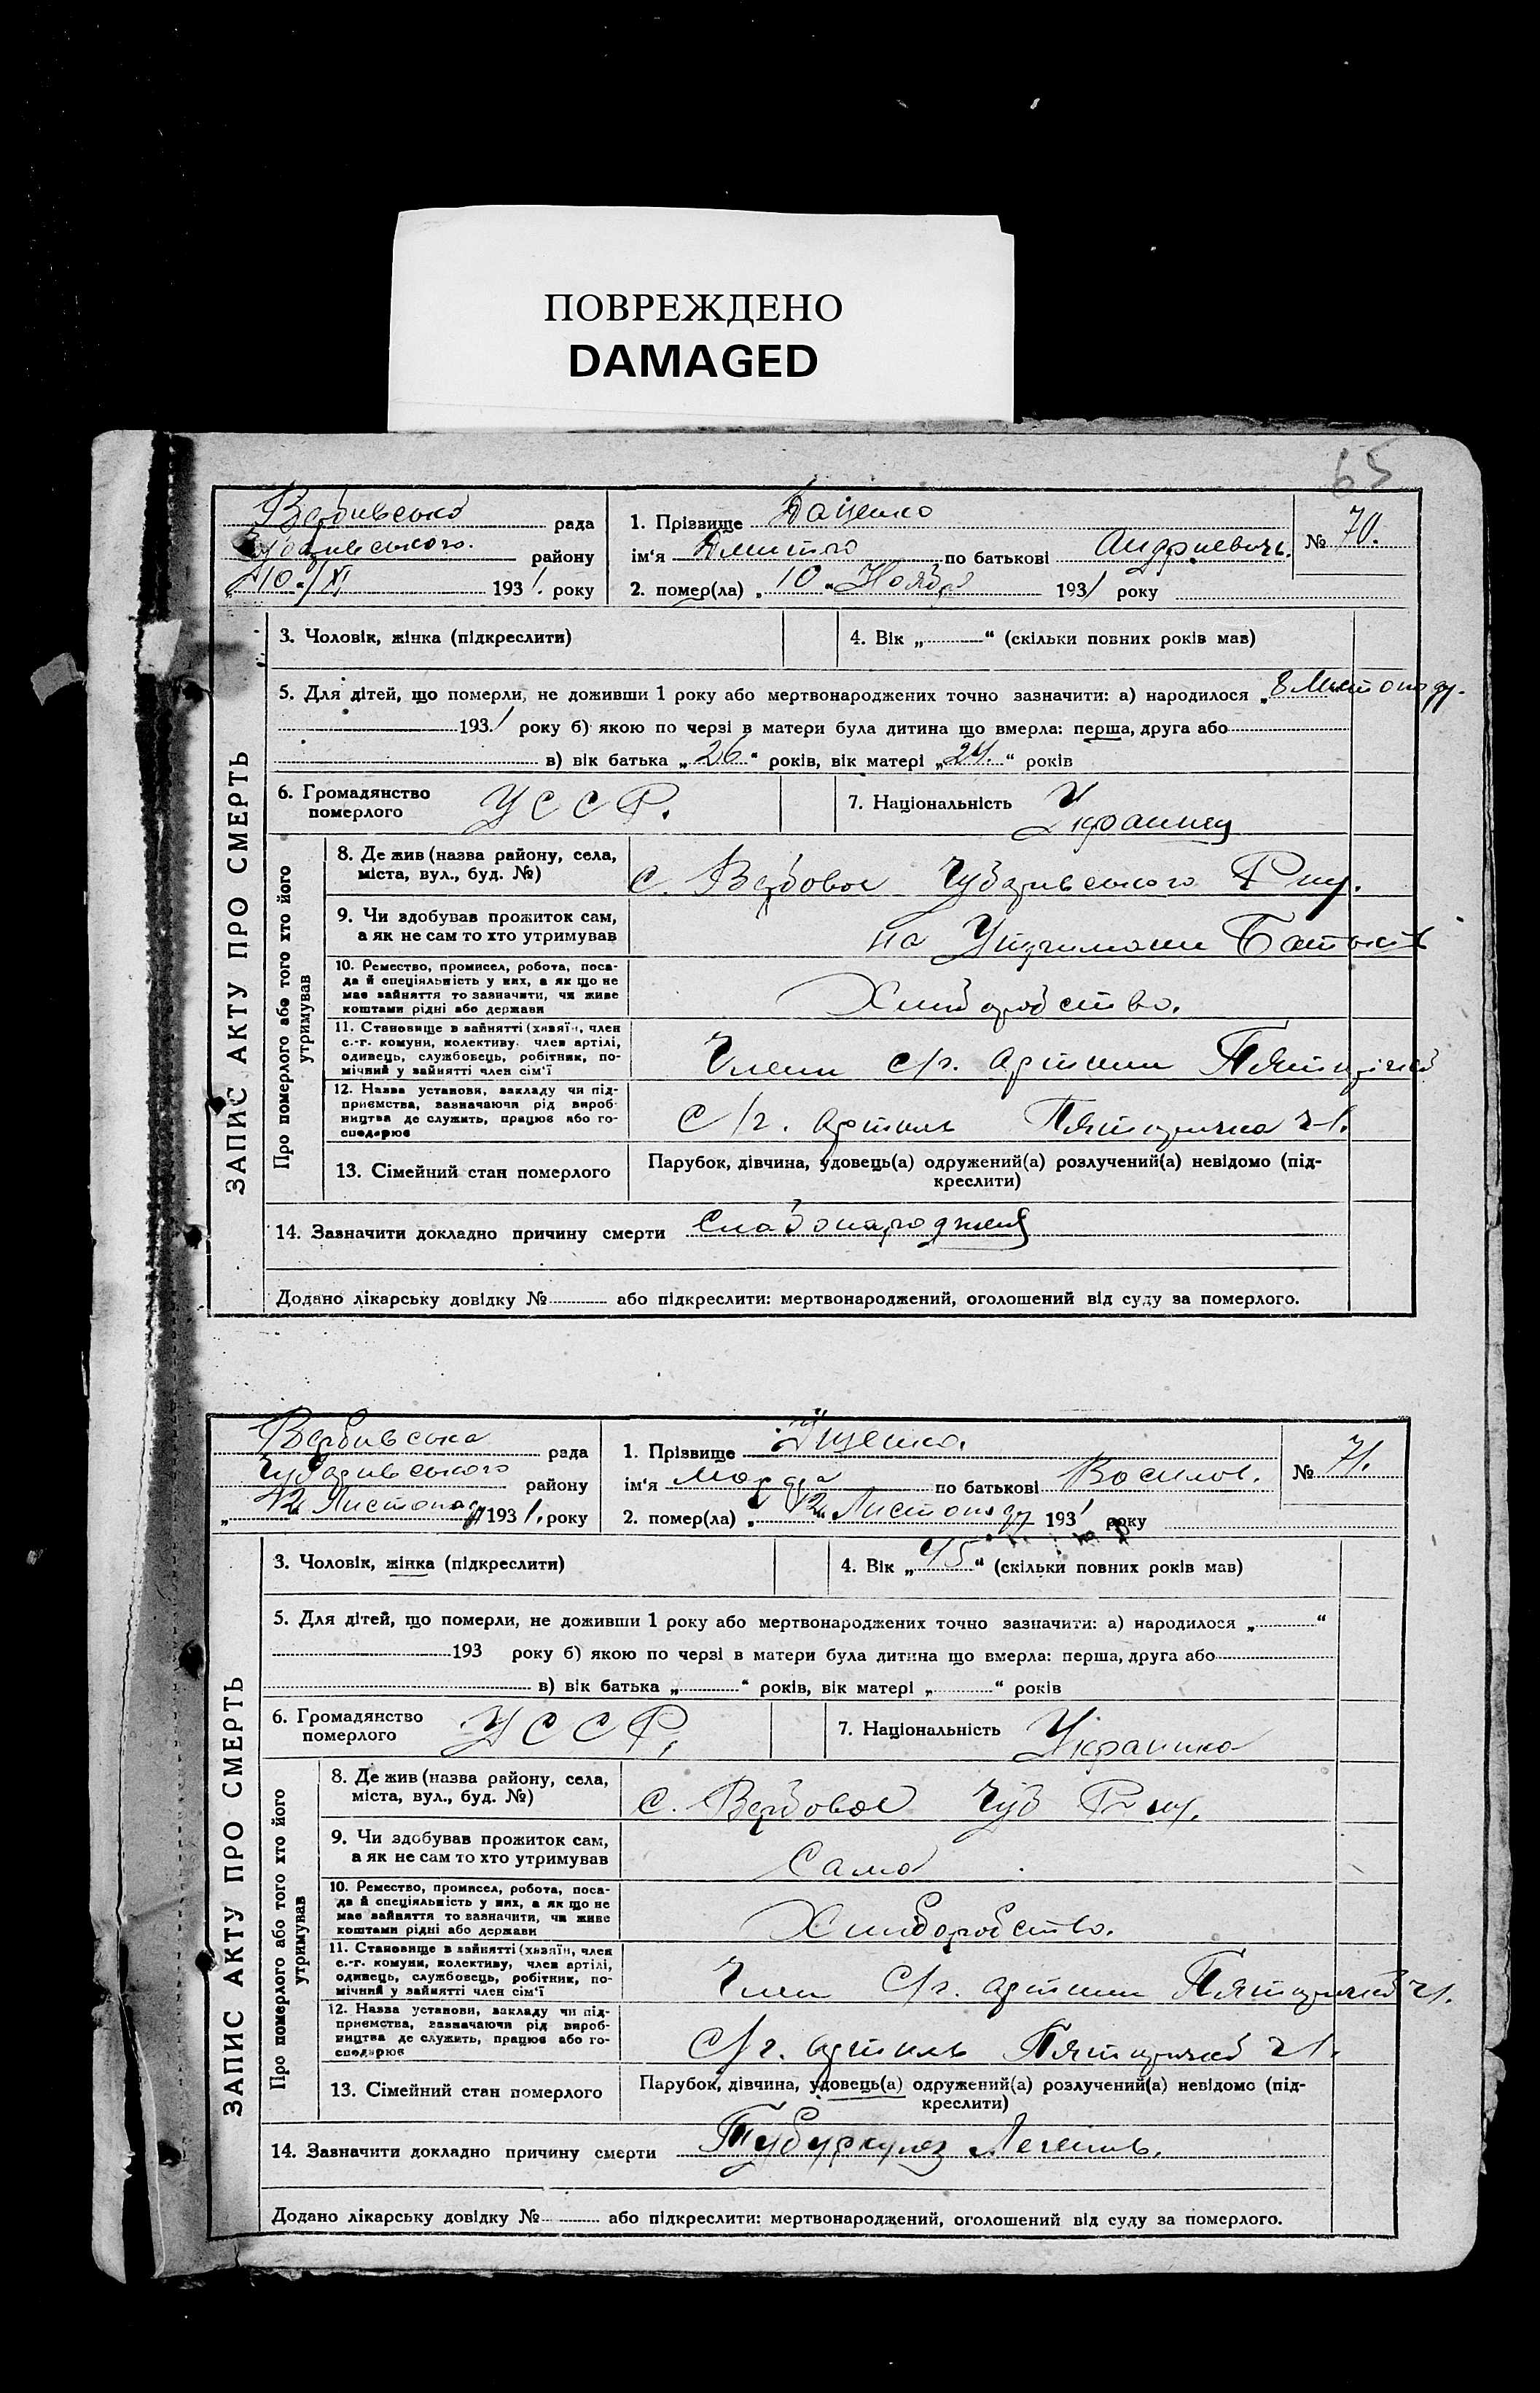 ПОВРЕЖДЕНО
DAMAGED
65
Вербивська рада
Чубаривського району
"10"/XI 1931. року
1. Прізвище Даценко
ім'я Дмитро по батькові Андриевичь.
№ 70.
2. помер(ла) „10" Ноября 1931 року
ЗАПИС АКТУ ПРО СМЕРТЬ
3. Чоловік, жінка (підкреслити)
4. Вік „ “ (скільки повних років мав)
5. Для дітей, що померли, не доживши 1 року або мертвонароджених точно зазначити: а) народилося „8 Листопаду.
1931 року б) якою по черзі в матери була дитина що вмерла: перша, друга або
в) вік батька „26“ років, вік матері „24.“ років
6. Громадянство померлого УССР.
7. Національність Украинец
Про померлого або того хто його утримував
8. Де жив (назва району, села, міста, вул., буд. №)
с. Вербовое Чубаривського Р-ну.
9. Чи здобував прожиток сам, а як не сам то хто утримував
на Утримани Батькив
10. Ремество, промисел, робота, посада й спеціяльність у них, а як що не має зайняття то зазначити, чи живе коштами рідні або держави
Хлиборобство.
11. Становище в зайнятті (хазяїн, член с.-г. комуни, колективу. член артілі, одинець, службовець, робітник, помічний у зайнятті член сім'ї
Члени с/г. артили Пятирічка
12. Назва установи, закладу чи підприємства, зазначаючи рід виробництва де служить, працює або господарює
С/г. артиль Пятиричка
13. Сімейний стан померлого
Парубок, дівчина, удовець(а) одружений(а) розлучений(а) невідомо (підкреслити)
14. Зазначити докладно причину смерти Слабонароджений
Додано лікарську довідку № або підкреслити: мертвонароджений, оголошений від суду за померлого.
Вербивська рада
Чубаривського району
„12 Листопад 1931. року
1. Прізвище Яценко.
ім'я Марфа по батькові Василов.
№ 71.
2. помер(ла) „12" Листопаду 1931 року
ЗАПИС АКТУ ПРО СМЕРТЬ
3. Чоловік, жінка (підкреслити)
4. Вік „45“ (скільки повних років мав)
5. Для дітей, що померли, не доживши 1 року або мертвонароджених точно зазначити: а) народилося „ “
193 року б) якою по черзі в матери була дитина що вмерла: перша, друга або
в) вік батька „ “ років, вік матері „ “ років
6. Громадянство померлого УССР,
7. Національність Украинка
Про померлого або того хто його утримував
8. Де жив (назва району, села, міста, вул., буд. №)
с. Вербовое Чуб Р-ну.
9. Чи здобував прожиток сам, а як не сам то хто утримував
Сама
10. Ремество, промисел, робота, посада й спеціяльність у них, а як що не має зайняття то зазначити, чи живе коштами рідні або держави
Хлиборобство.
11. Становище в зайнятті (хазяїн, член с.-г. комуни, колективу, член артілі, одинець, службовець, робітник, помічний у зайнятті член сім'ї
Член С/г. артили Пятиричка
12. Назва установи, закладу чи підприємства, зазначаючи рід виробництва де служить, працює або господарює
С/г. артиль Пятиричка
13. Сімейний стан померлого
Парубок, дівчина, удовець(а) одружений(а) розлучений(а) невідомо (підкреслити)
14. Зазначити докладно причину смерти Тубуркулез Легень.
Додано лікарську довідку № або підкреслити: мертвонароджений, оголошений від суду за померлого.